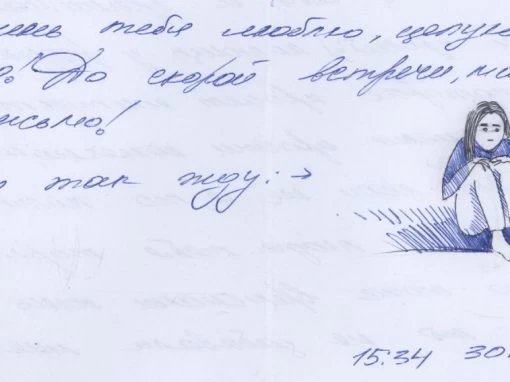 тебя люблю, целую
! До скорой встречи,
письмо!
так жду: →
15:34 30.